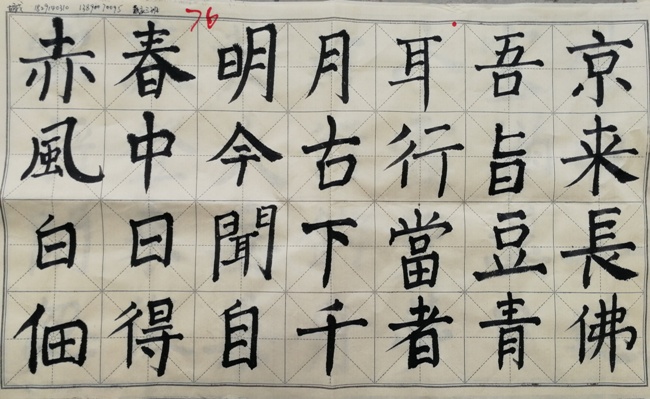 京来長佛
吾旨豆青
耳行當者
月古下千
明今聞自
春中曰得
赤風白佃
76